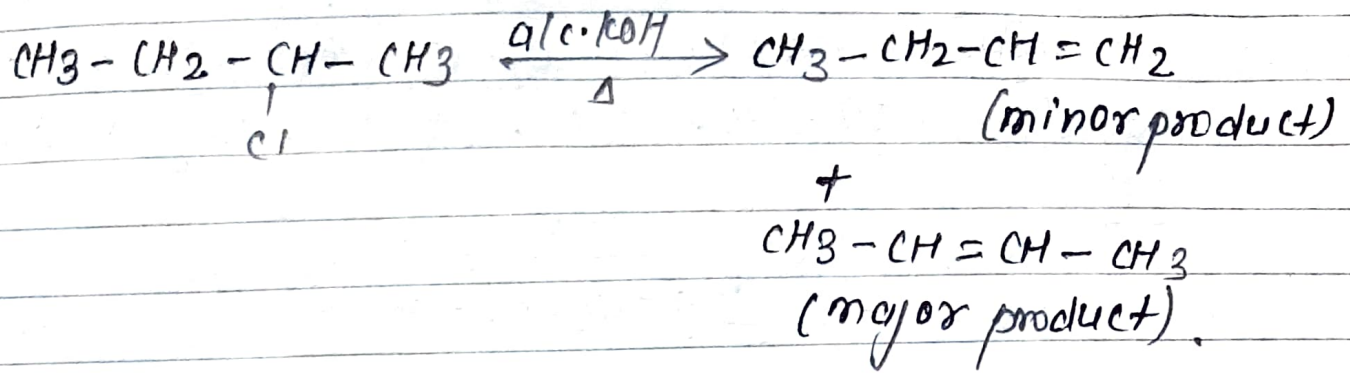 CH3 - CH2 - CH - CH3 alc. KOH → CH3 - CH2 - CH = CH2
Δ
Cl
(minor product)
+
CH3 - CH = CH - CH3
(major product).